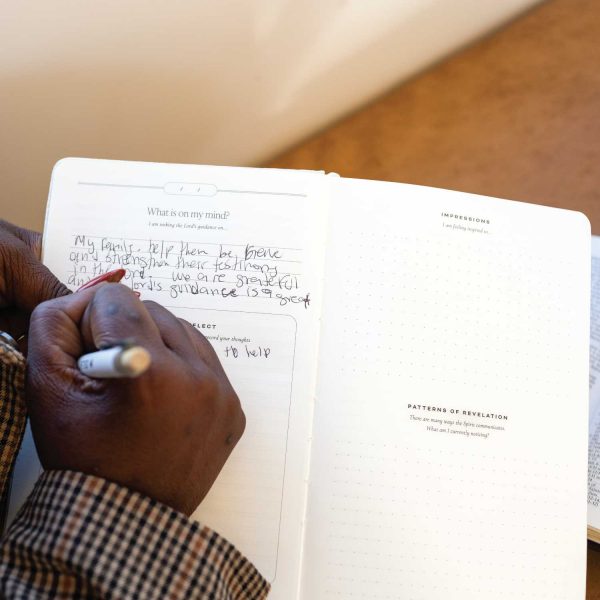 What is on my mind?
I am seeking the Lord's guidance on...
My family, help them be
and strengthen their testimony
in the Lord. we are grateful
guidance is a great
LECT
record your thoughts
to help
IMPRESSIONS
I am feeling inspired to...
PATTERNS OF REVELATION
There are many ways the Spirit communicates.
What am I currently noticing?